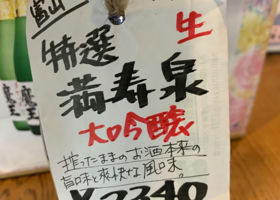 富山
生
特選
満寿泉
大吟醸
搾ったままのお酒本来の
旨味と爽快な風味